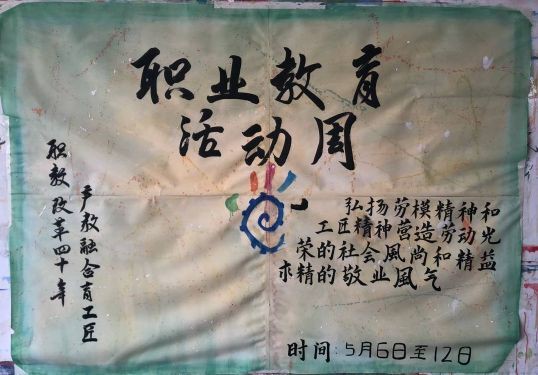 职业教育
活动周
职教改革四十年
产教融合育工匠
弘扬劳模精神和
工匠精神营造劳动光
荣的社会風尚和精益
求精的敬业風气
时间:5月6日至12日